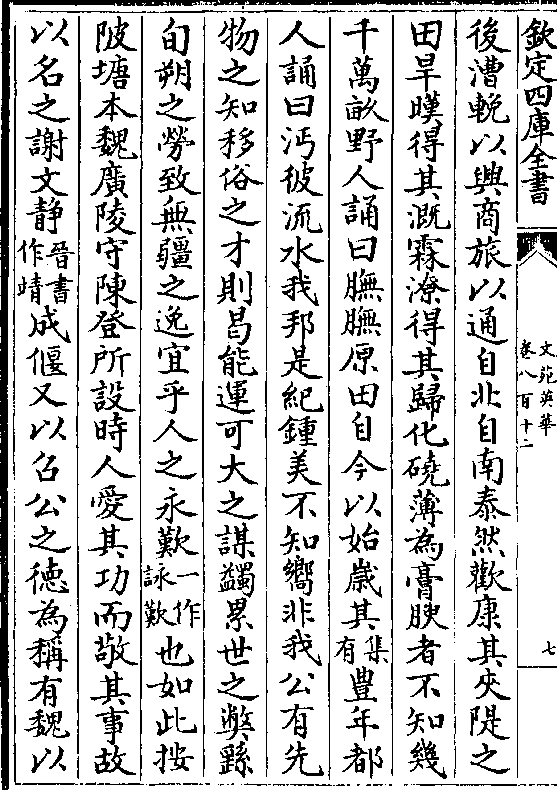 欽定四庫全書
文苑英華
卷八百十二
七
後漕輓以興商旅以通自北自南泰然歡康其夾隄之
田旱暵得其溉霖潦得其歸化磽薄為膏腴者不知幾
千萬畝野人誦曰膴膴原田自今以始歲其集有豊年都
人誦曰沔彼流水我邦是紀鍾美不知嚮非我公有先
物之知移俗之才則曷能運可大之謀蠲累世之弊繇
旬朔之勞致無疆之逸宜乎人之永歎一作詠歎也如此按
陂塘本魏廣陵守陳登所設時人愛其功而敬其事故
以名之謝文靜晉書作靖成偃又以召公之德為稱有魏以